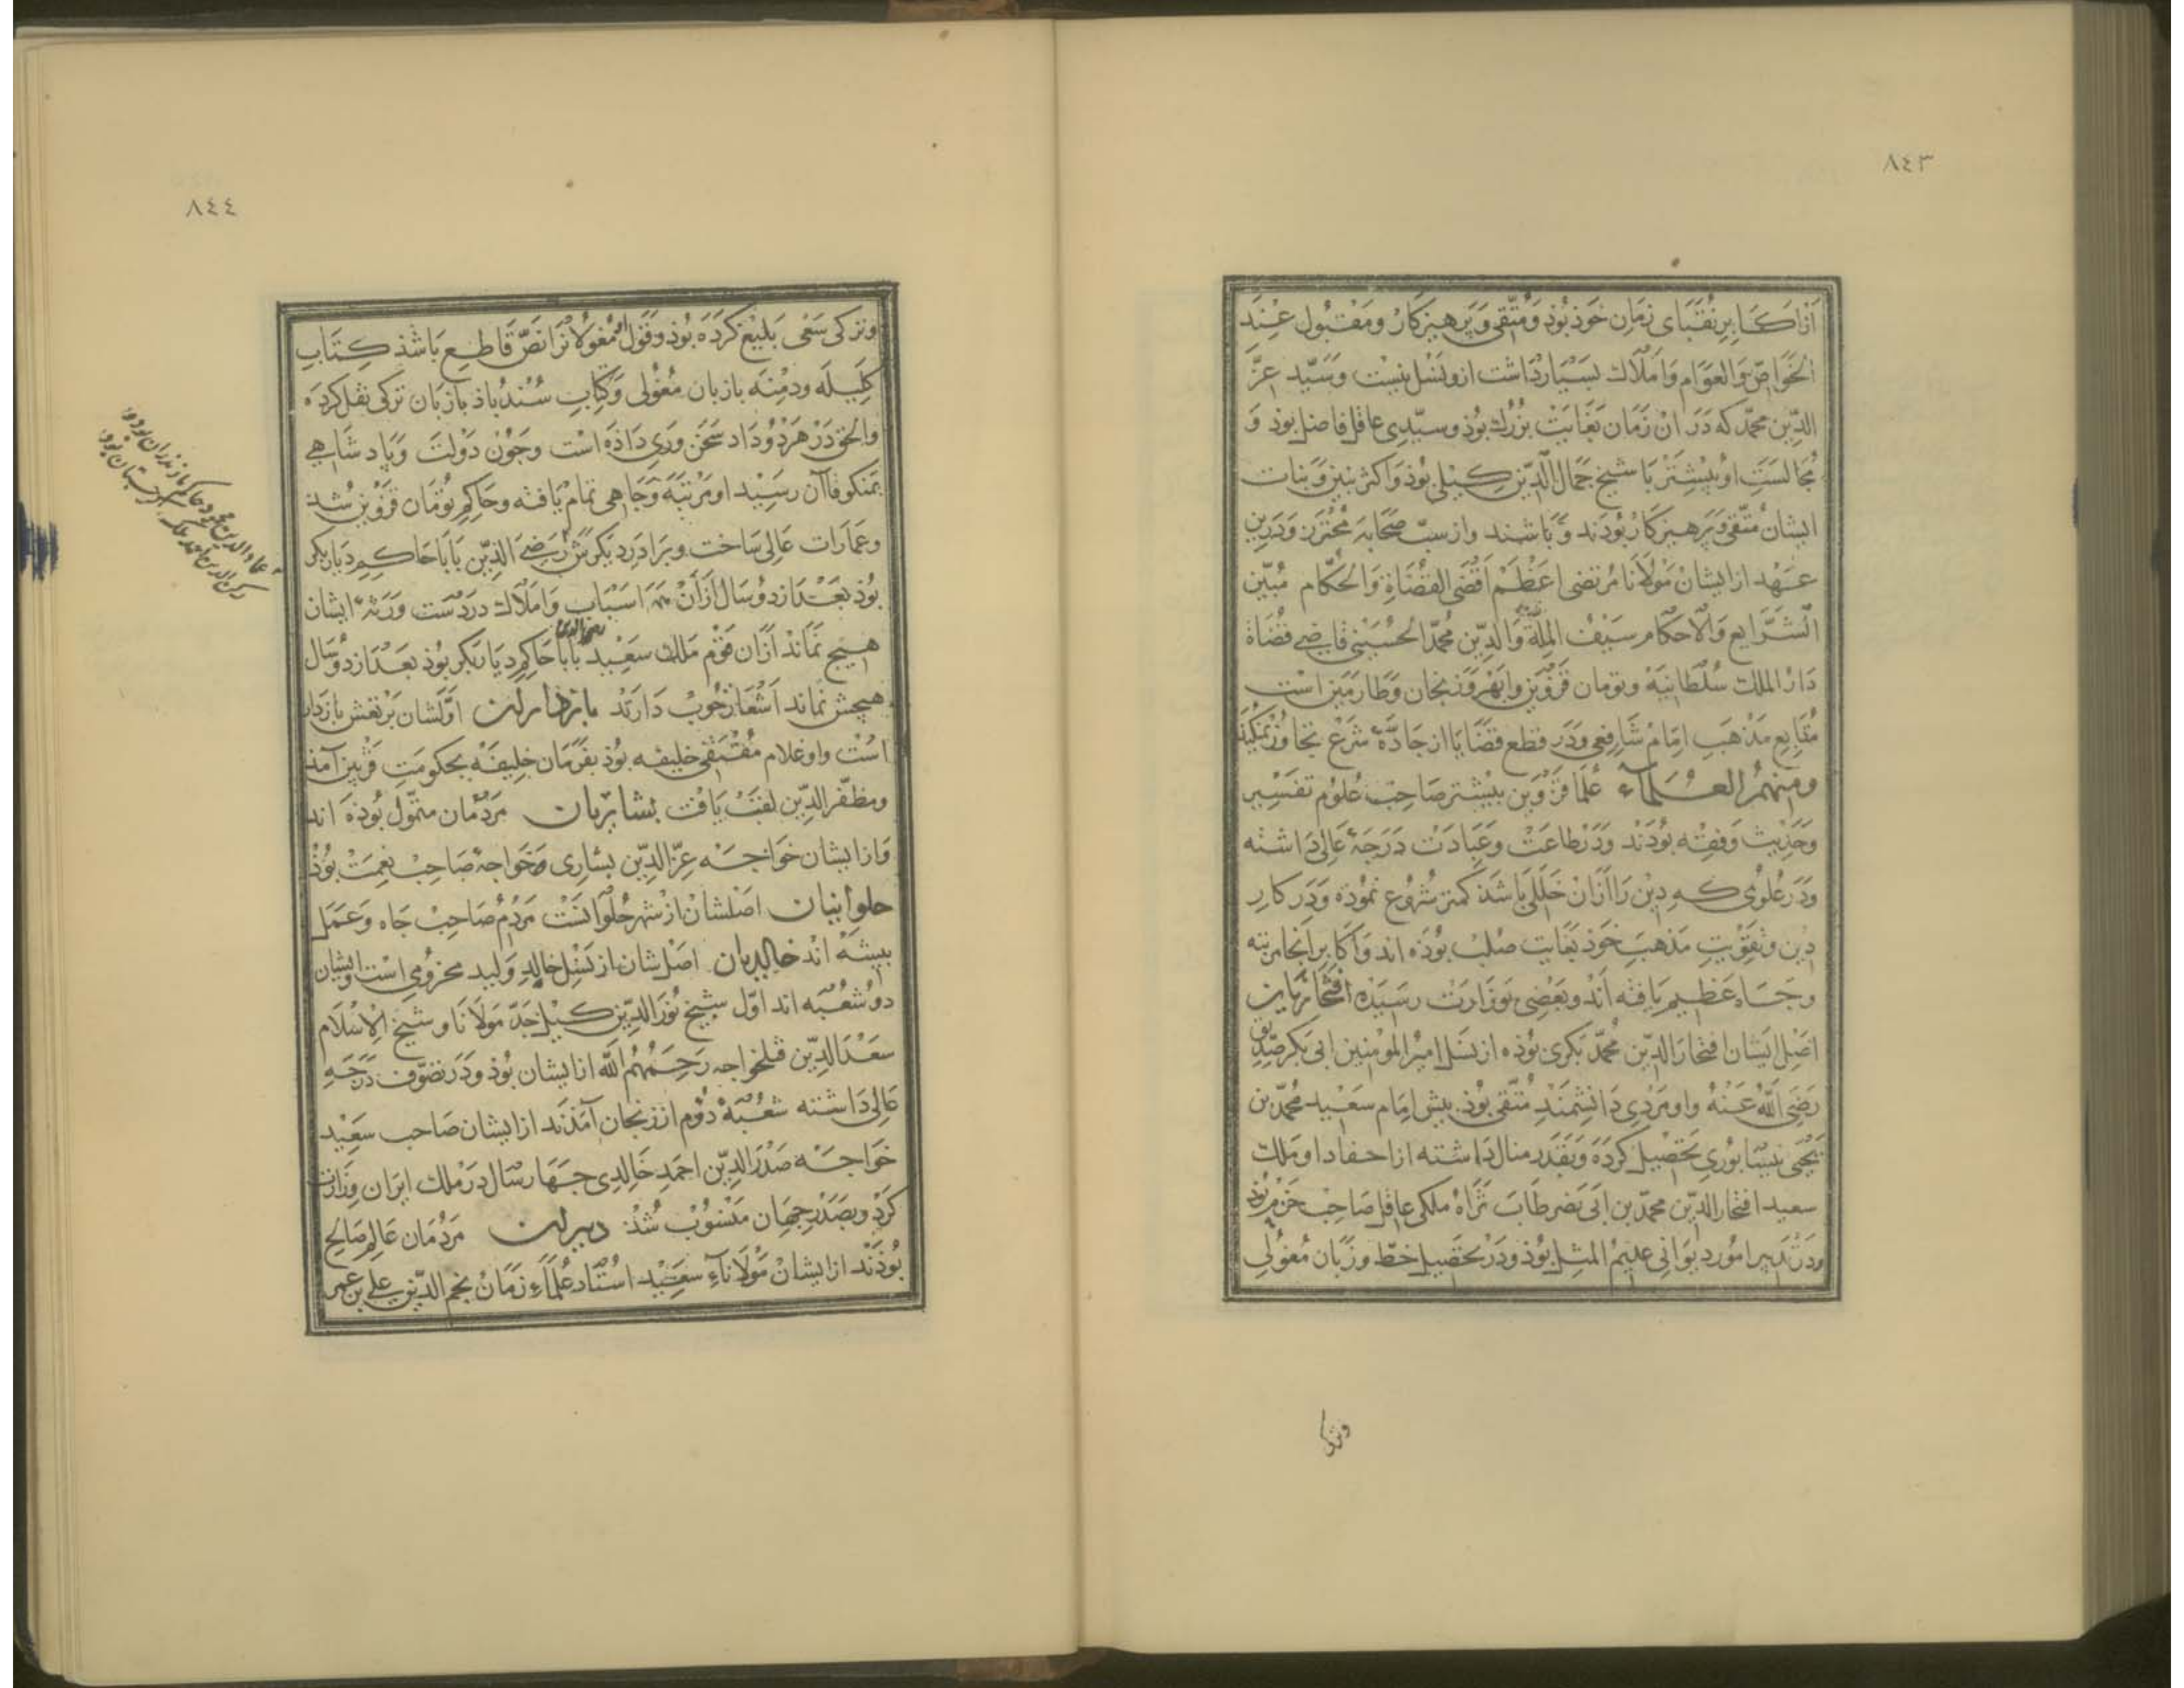 ٨٤٣
از اکابر نقبای زمان خوذ بوذ و متّقی و پرهیزکار و مقبول عند
الخواصّ والعوام و املاک بسیار داشت ازو نسل نیست و سیّد عزّ
الدّین محمّد که در ان زمان بغایت بزرك بوذ و سیّدی عاقل فاضل بوذ و
مجالست او بیشتر با شیخ جمال الدّین کیلی بوذ و اکثر بنین و بنات
ایشان متّقی و پرهیزکار بوذند و باشند و از سبّ صحابه محترز و درین
عهد از ایشان مولانا مرتضی اعظم اقضی القضاة والحکّام مبیّن
الشّرایع والاحکام سیف الملّة والدّین محمّد الحسینی قاضی قضاة
دار الملك سلطانیه و تومان قزوین و ابهر و زنجان و طارمین است
متابع مذهب امام شافعی و در قطع قضایا از جادّهٔ شرع تجاوز نمیکند
ومنهم العلمآء علما قزوین بیشتر صاحب علوم تفسیر
و حدیث و فقه بوذند و در طاعت و عبادت درجهٔ عالی داشته
و در علومی که دین را ازان خللی باشذ کمتر شروع نموذه و در کار
دین و تقویت مذهب خوذ بغایت صلب بوذه اند و اکابر انجا مرتبه
و جاه عظیم یافته اند و بعضی بوزارت رسیذه افتخاریان
اصل ایشان افتخار الدّین محمّد بکری بوذه از نسل امیر المومنین ابی بکر صدّیق
رضی الله عنه و او مردی دانشمند متّقی بوذ پیش امام سعید محمّد بن
یحیی نیسابوری تحصیل کرده و بقدر منال داشته از احفاد او ملك
سعید افتخار الدّین محمّد بن ابی نصر طاب ثراه ملکی عاقل صاحب حزم بوذ
و در تدبیر امور دیوانی عدیم المثل بوذ و در تحصیل خطّ و زبان مغولی
وترکی
٨٤٤
وترکی سعی بلیغ کرده بوذ و قول او مغولانرا نصّ قاطع باشذ کتاب
کلیله و دمنه بازبان مغولی و کتاب سندباذ بازبان ترکی نقل کرده
والحق در هر دو داد سخن وری داذه است و چون دولت و پادشاهی
بمنکوقاآن رسید او مرتبه و جاهی تمام یافته و حاکم تومان قزوین شد
و عمارات عالی ساخت و برادر دیکرش رضی الدّین بابا حاکم دیاربکر
بوذ بعد از دو سال ازان همه اسباب و املاك در دست ورثهٔ ایشان
هیچ نماند ازان قوم ملك سعید رضی الدین بابا حاکم دیاربکر بوذ بعد از دو سال
هیچش نماند اشعار خوب دارند بازدارلن اوّلشان برنقش بازدار
است و او غلام مقتفی خلیفه بوذ بفرمان خلیفه بحکومت قزوین آمذ
و مظفّر الدّین لقب یافت بشاریان مردمان متموّل بوذه اند
و از ایشان خواجه عزّ الدّین بشاری خواجهٔ صاحب نعمت بوذ
حلوانیان اصلشان از شهر حلوانست مردم صاحب جاه و عمل
پیشه اند خالدیان اصل شان از نسل خالد ولید مخزومی است و ایشان
دو شعبه اند اوّل شیخ نور الدّین کیل جدّ مولانا و شیخ الاسلام
سعد الدّین قتلخواجه رحمهم الله از ایشان بوذ و در تصوّف درجه
عالی داشته شعبهٔ دوم از زنجان آمذند از ایشان صاحب سعید
خواجه صدر الدّین احمد خالدی چهار سال در ملك ایران وزارت
کرد و بصدر جهان منسوب شذ دبیرلن مردمان عالم صالح
بوذند از ایشان مولانآء سعید استاد علمآء زمان نجم الدّین علی بن عمر
عماد الدین محمود حاکم مازندران بوده
رکن الدین احمد ملك کرجستان بود